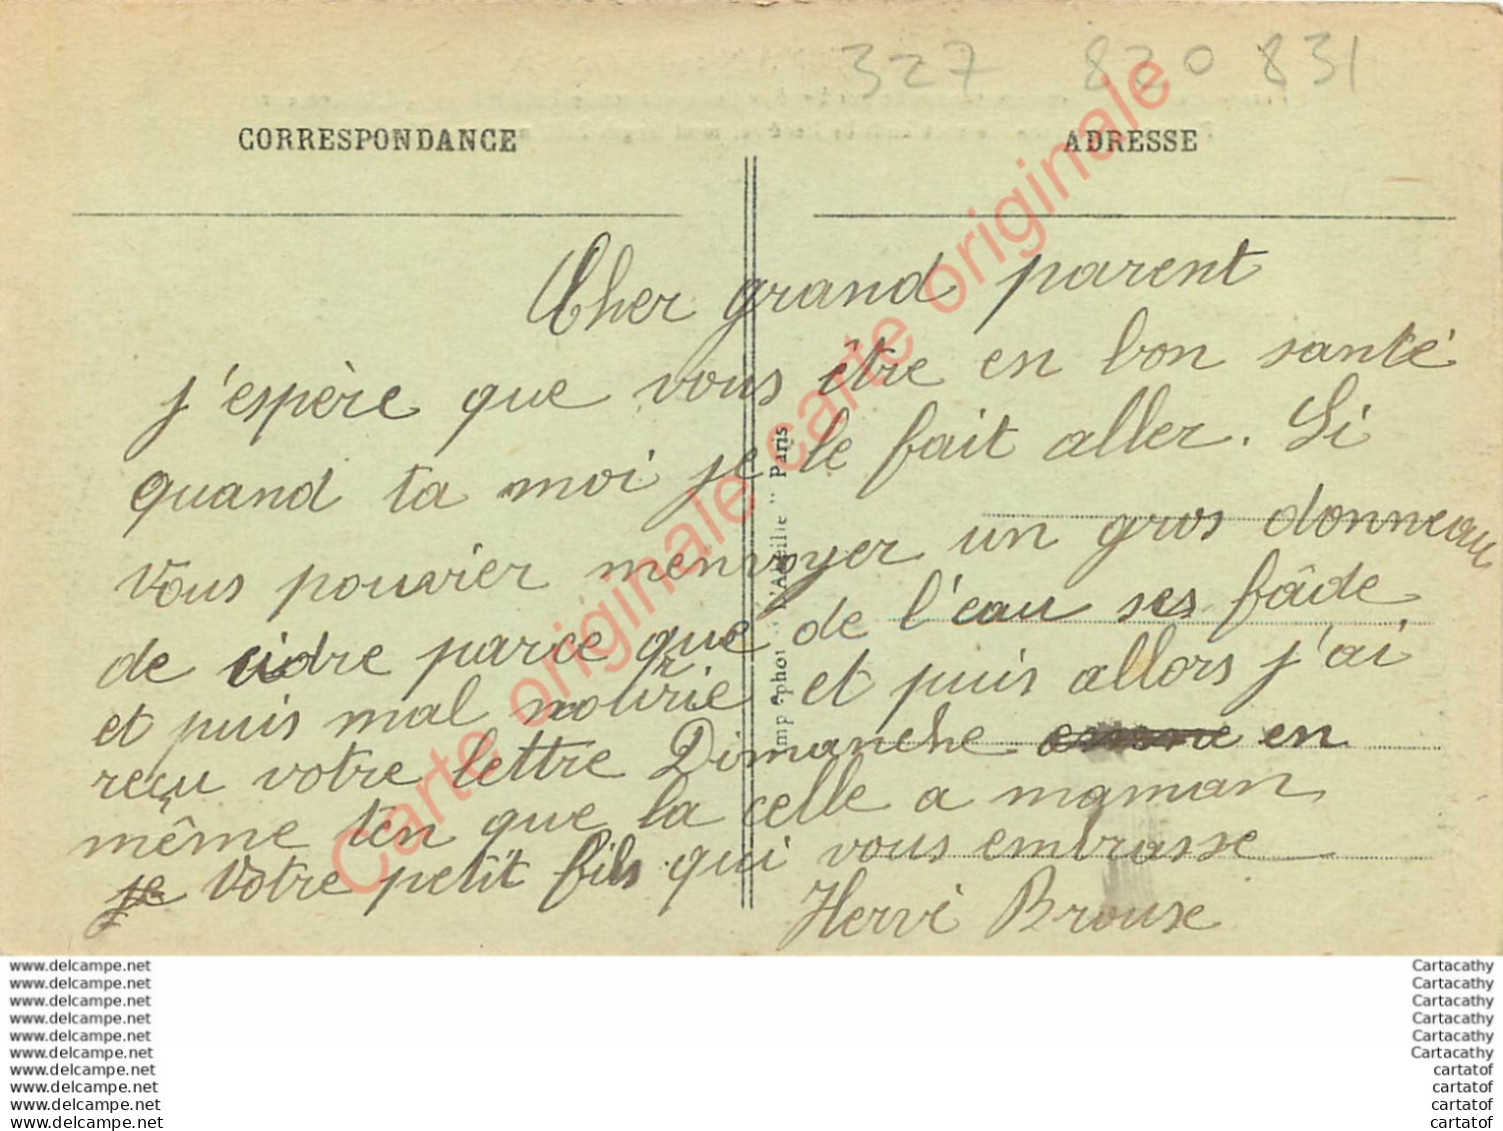 327 820 831
CORRESPONDANCE
ADRESSE
Cher grand parent
j'espère que vous être en bon santé
quand ta moi je le fait aller. Si
vous pouvier menvoyer un gros donneau
de cidre parce que de l'eau ses fâde
et puis mal nourie et puis allors j'ai
reçu votre lettre Dimanche en
même ten que la celle a maman
je Votre petit fils qui vous embrasse
Hervé Brouse
Imp phot "L'Abeille" Paris
Carte originale carte originale
Carte originale carte originale
www.delcampe.net
www.delcampe.net
www.delcampe.net
www.delcampe.net
www.delcampe.net
www.delcampe.net
www.delcampe.net
www.delcampe.net
www.delcampe.net
www.delcampe.net
Cartacathy
Cartacathy
Cartacathy
Cartacathy
Cartacathy
Cartacathy
cartatof
cartatof
cartatof
cartatof